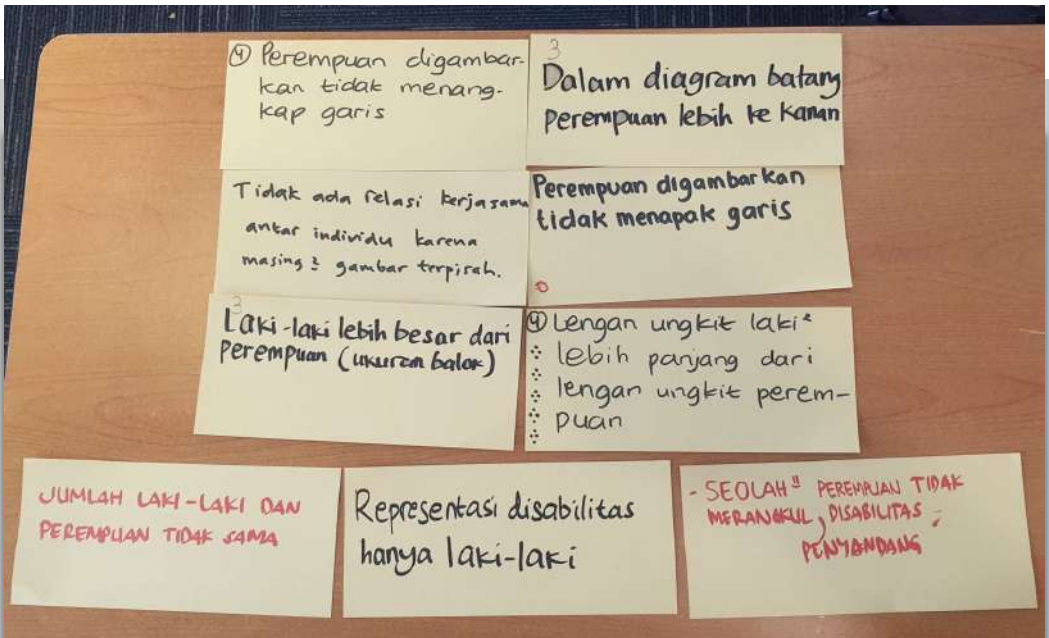 ④ Perempuan digambar-
kan tidak menang-
kap garis
3
Dalam diagram batang
perempuan lebih ke kanan
Tidak ada relasi kerjasama
antar individu karena
masing² gambar terpisah.
Perempuan digambarkan
tidak menapak garis
0
3
Laki-laki lebih besar dari
perempuan (ukuran balok)
④ Lengan ungkit laki²
lebih panjang dari
lengan ungkit perem-
puan
JUMLAH LAKI-LAKI DAN
PEREMPUAN TIDAK SAMA
Representasi disabilitas
hanya laki-laki
- SEOLAH" PEREMPUAN TIDAK
MERANGKUL, DISABILITAS
PENYANDANG